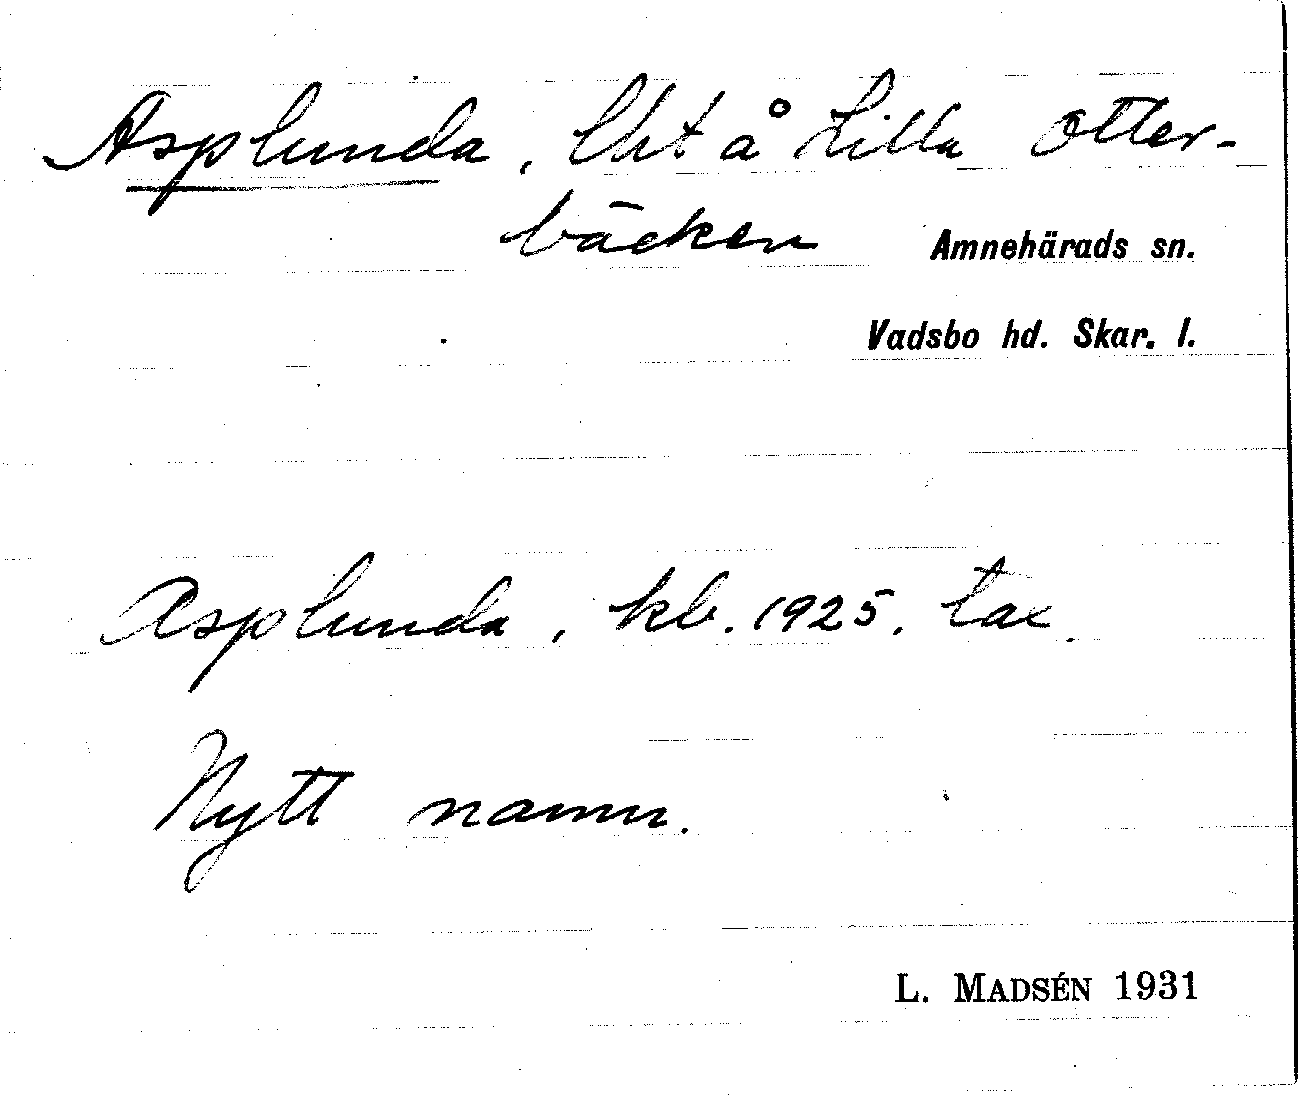 Asplunda, lht å Lilla Otter-
bäcken
Amnehärads sn.
Vadsbo hd. Skar. l.
Asplunda, kb. 1925, tax.
Nytt namn.
L. MADSÉN 1931